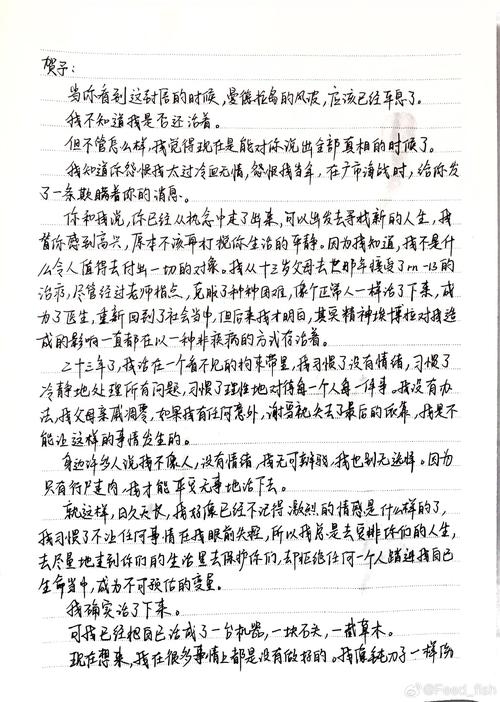 贺予：
当你看到这封信的时候，曼德拉岛的风波，应该已经平息了。
我不知道我是否还活着。
但不管怎么样，我觉得现在是能对你说出全部真相的时候了。
我知道你怨恨我太过冷血无情，怨恨我当年，在广市海战时，给你发
了一条欺瞒着你的消息。
你和我说，你已经从执念中走了出来，可以出发去寻找新的人生，我
替你感到高兴，原本不该再打搅你生活的平静。因为我知道，我不是什
么令人值得去付出一切的对象。我从十三岁父母去世那年接受了rn-13的
治疗，尽管经过老师指点，克服了种种困难，像个正常人一样活了下来，成
为了医生，重新回到了社会当中，但后来我才明白，其实精神埃博拉对我造
成的影响一直都在以一种非疾病的方式存活着。
二十三年了，我活在一个看不见的拘束带里，我习惯了没有情绪，习惯了
冷静地处理所有问题，习惯了理性地对待每一个人每一件事。我没有办
法，我父母亲戚凋零，如果我有任何意外，谢雪就失去了最后的依靠，我是不
能让这样的事情发生的。
身边许多人说我不像人，没有情绪，我无可辩驳，我也别无选择。因为
只有行尸走肉，我才能平安无事地活下去。
就这样，日久天长，我好像已经不记得激烈的情感是什么样的了，
我习惯了不让任何事情在我眼前失控，所以我总是去安排你们的人生，
去尽量地走到你们的生活里去保护你们，却拒绝任何一个人踏进我自己
生命当中，成为不可预估的变量。
我确实活了下来。
可我已经把自己活成了一台机器，一块石头，一截草木。
现在想来，我在很多事情上都是没有做好的。我像钝刀子一样伤
@Feed_fish